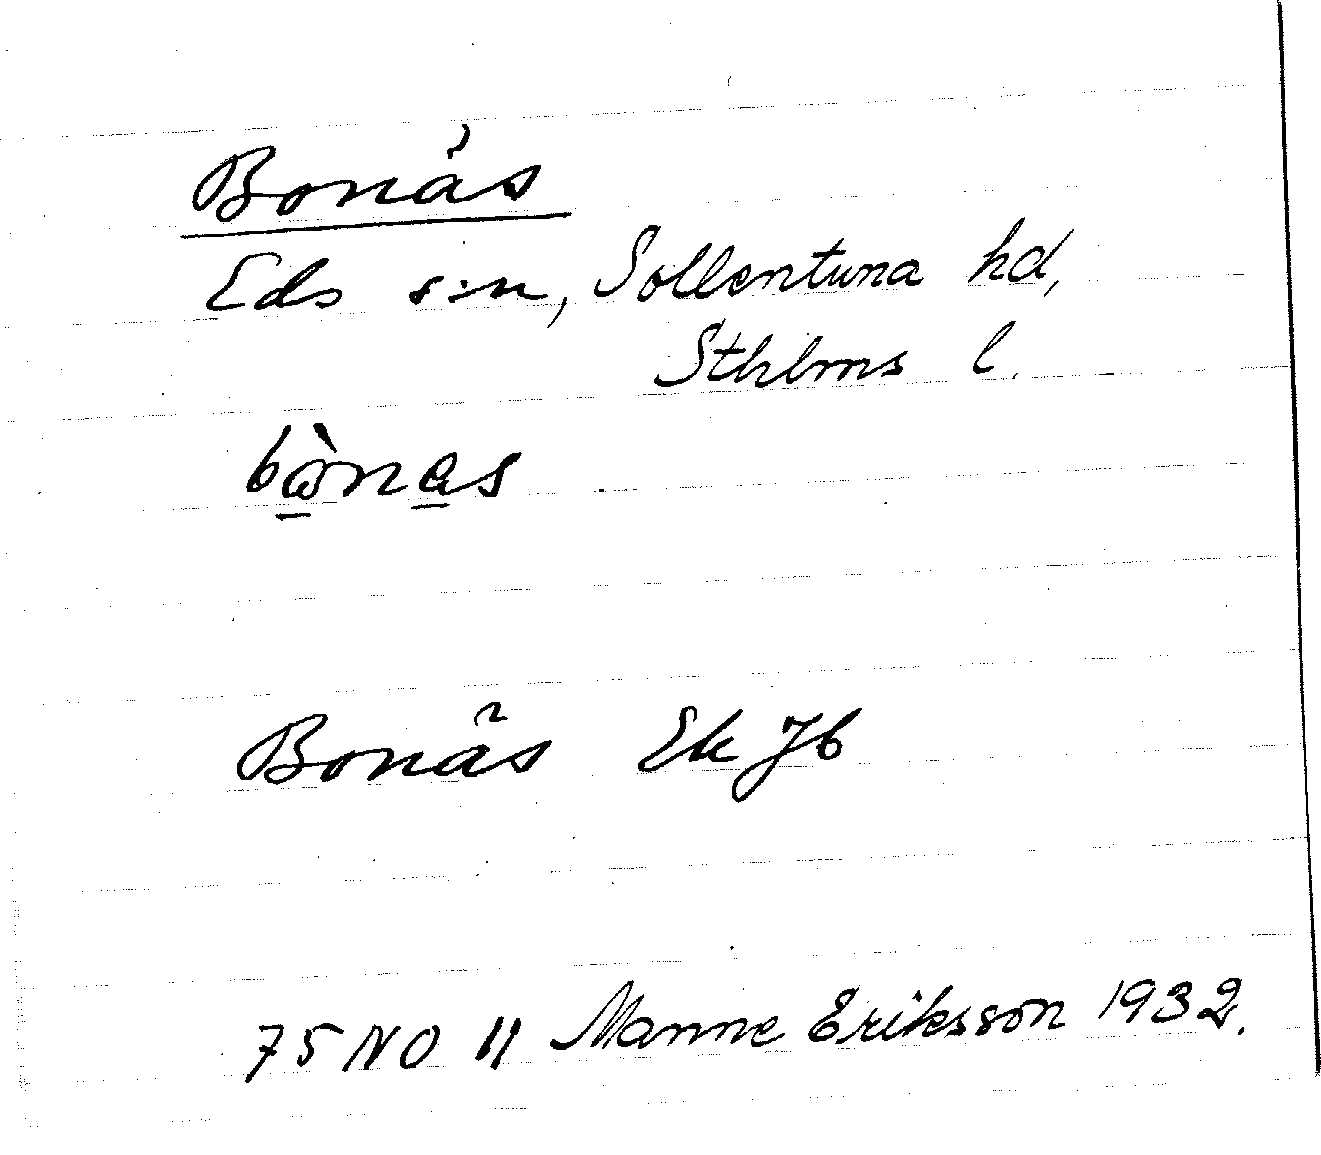 Bonäs
Eds s:n, Sollentuna hd,
Sthlms l.
Bonäs Ek Jb
75 NO 11 Manne Eriksson 1932.